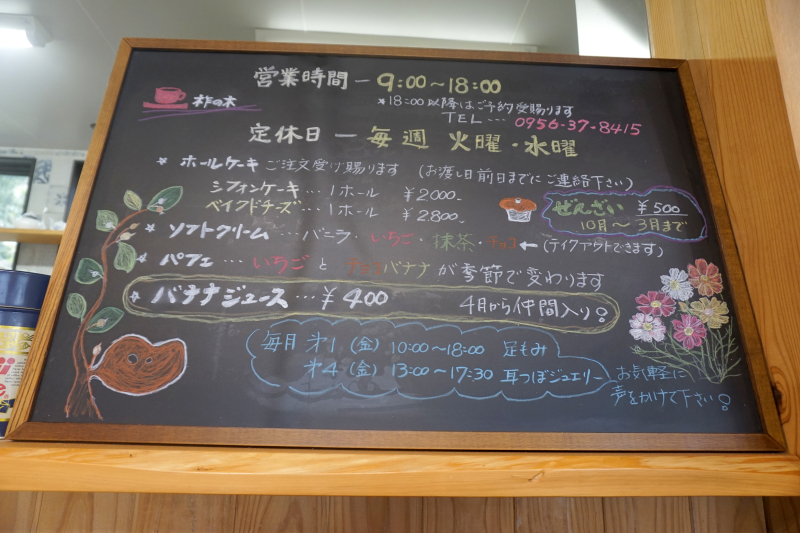 営業時間 ― 9:00～18:00
柞の木
*18:00以降はご予約受賜ります
TEL … 0956-37-8415
定休日 ― 毎週 火曜・水曜
* ホールケーキ ご注文受け賜ります (お渡し日前日までにご連絡下さい)
シフォンケーキ … 1ホール ¥2000-
ベイクドチーズ … 1ホール ¥2800-
ぜんざい ¥500
10月～3月まで
* ソフトクリーム … バニラ・いちご・抹茶・チョコ ← (テイクアウトできます)
* パフェ … いちご と チョコバナナ が季節で変わります
* バナナジュース … ¥400 4月から仲間入り♪
毎月 第1 (金) 10:00～18:00 足もみ
第4 (金) 13:00～17:30 耳つぼジュエリー
お気軽に
声をかけて下さい♪